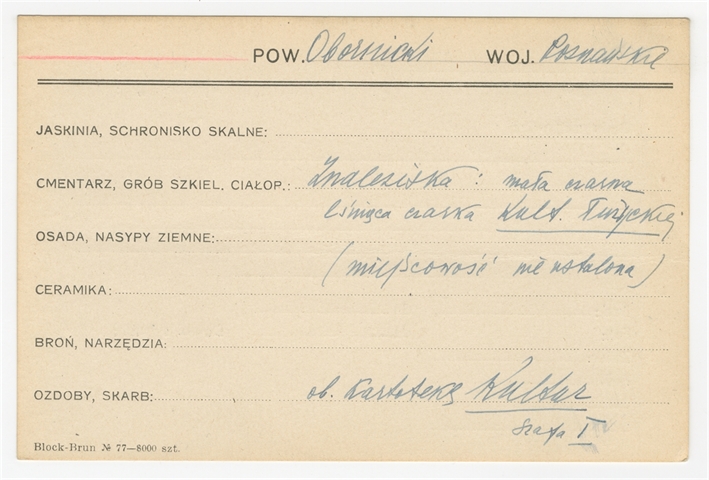 POW. Obornicki WOJ. Poznańskie
JASKINIA, SCHRONISKO SKALNE:
CMENTARZ, GRÓB SZKIEL. CIAŁOP.: Znaleziska: mała czarna
lśniąca czarka Kult. Łużyckiej
OSADA, NASYPY ZIEMNE:
(miejscowość nie ustalona)
CERAMIKA:
BROŃ, NARZĘDZIA:
OZDOBY, SKARB: ob. Kartotekę Kultur
Szafa I
Block-Brun № 77—8000 szt.